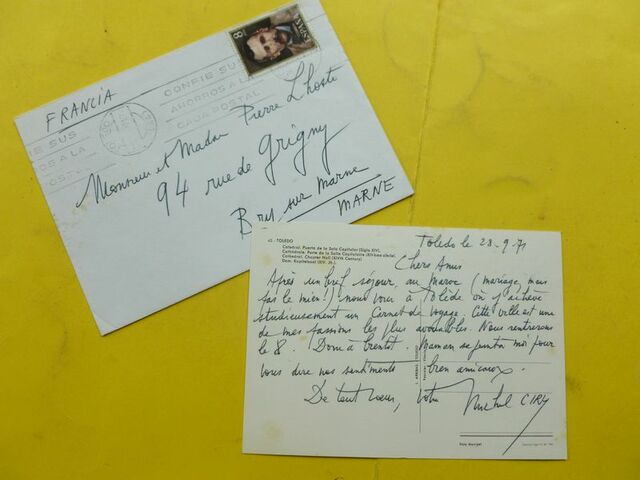 FRANCIA
8
ESPAÑA
CONFIE SUS
AHORROS A LA
CAJA POSTAL
Monsieur et Madame Pierre Lhoste
94 rue de Grigny
Bry sur Marne
MARNE
TOLEDO
Catedral. Puerta de la Sala Capitular (Siglo XIV).
Cathédrale. Porte de la Salle Capitulaire (XIVème siècle).
Cathedral. Chapter Hall (XIVth Century)
Dom. Kapitelsaal (XIV. Jh.).
Toledo le 28-9-71
Chers Amis
Après un bref séjour, au Maroc (mariage, mais
pas le mien!) nous voici à Tolède où j'achève
studieusement un Carnet de Voyage. Cette ville est une
de mes passions les plus avouables. Nous rentrerons
le 8. Donc à bientôt. Maman se joint à moi pour
vous dire nos sentiments bien amicaux.
De tout cœur, Votre Michel CIRY